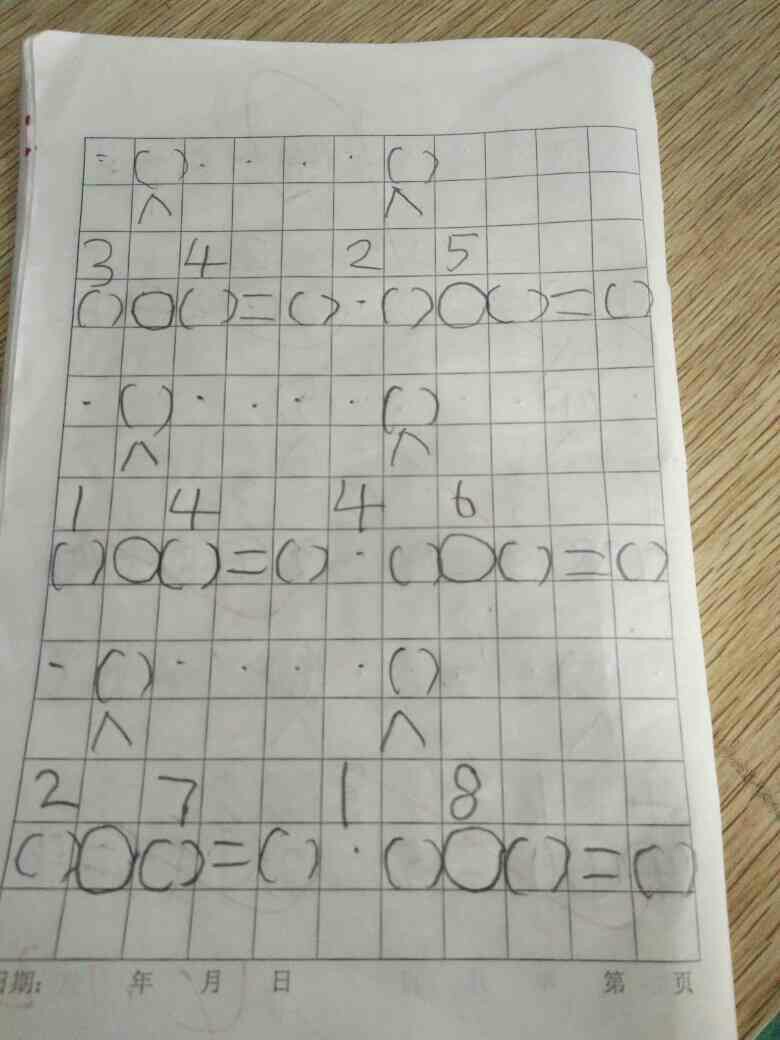 ( ) ( )
∧ ∧
3 4 2 5
( )○( )=( ) · ( )○( )=( )
( ) ( )
∧ ∧
1 4 4 6
( )○( )=( ) · ( )○( )=( )
( ) ( )
∧ ∧
2 7 1 8
( )○( )=( ) · ( )○( )=( )
日期: 年 月 日 第 页